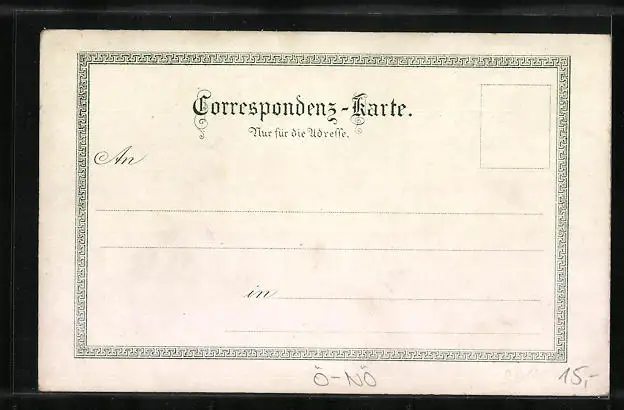 Correspondenz-Karte.
Nur für die Adresse.
An
in
Ö-NÖ
15,-